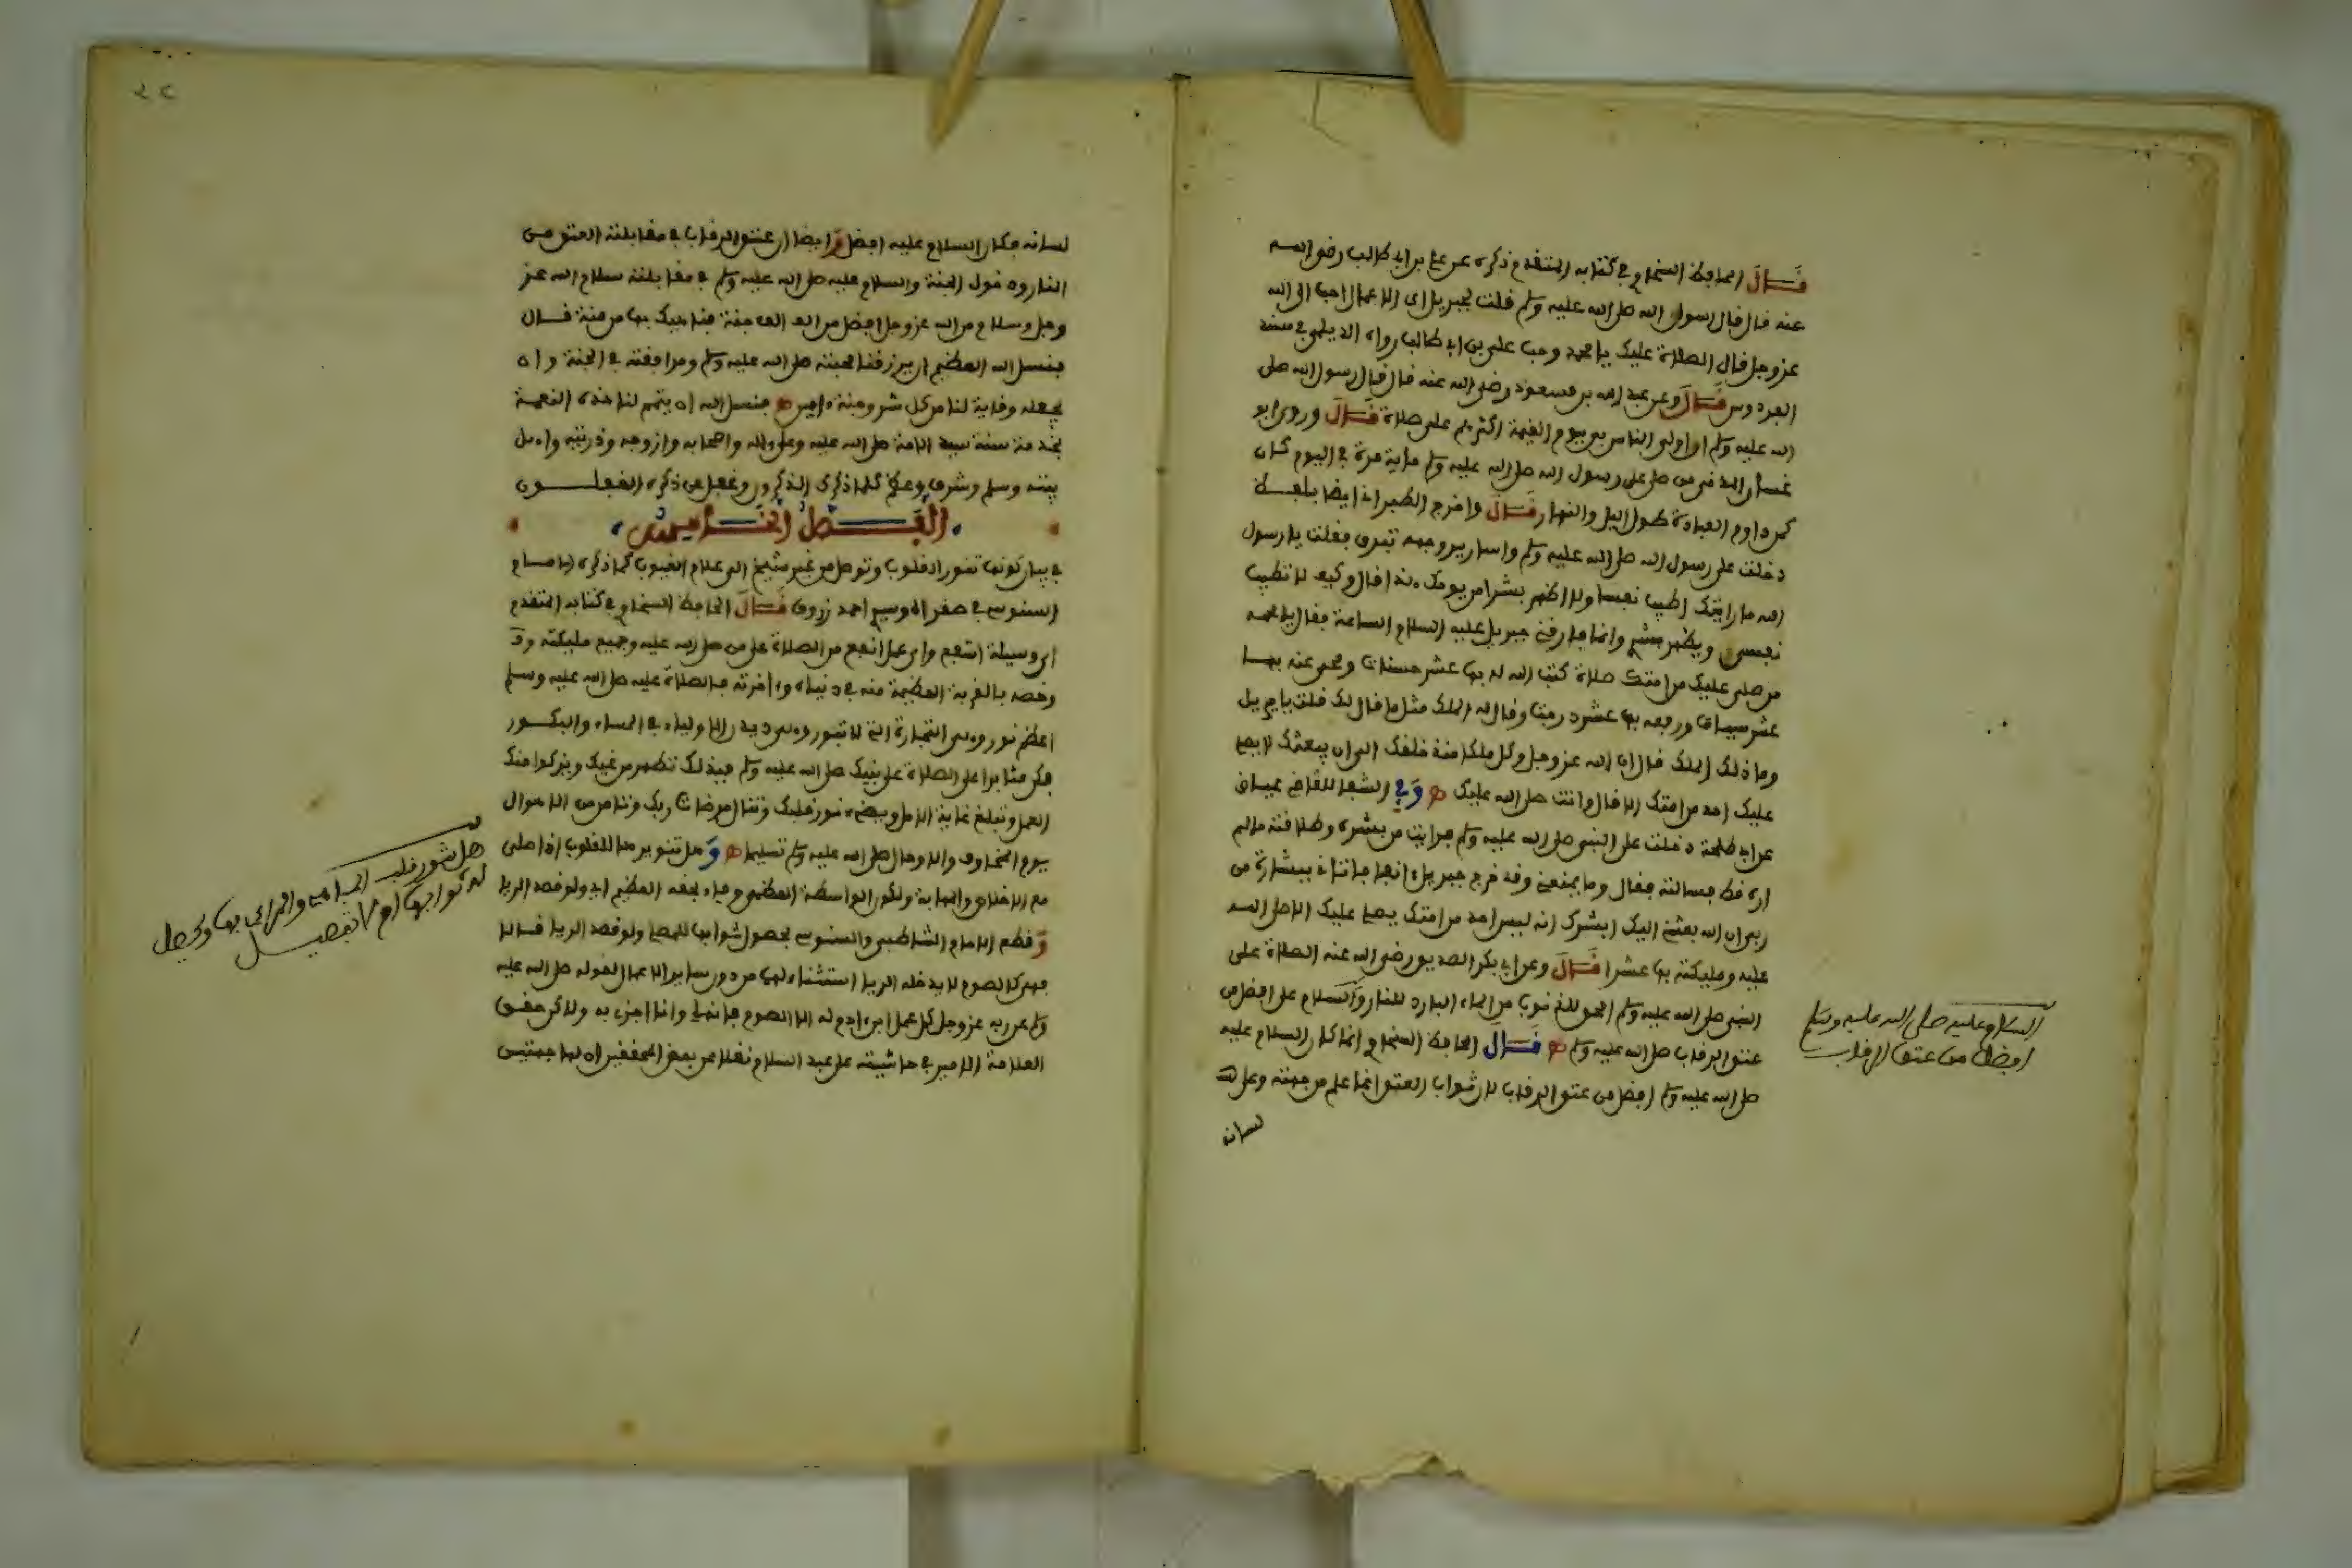 قال الحافظ السخاوي في كتابه المتقدم ذكره عن علي بن ابي طالب رضي الله
عنه قال قال رسول الله صلى الله عليه وسلم قلت لجبريل اي الاعمال احب الى الله
عز وجل قال الصلاة عليك يا محمد وحب علي بن ابي طالب رواه الديلمي في مسند
الفردوس قال وعن عبد الله بن مسعود رضي الله عنه قال قال رسول الله صلى
الله عليه وسلم ان اولى الناس بي يوم القيمة اكثرهم علي صلاة قال وروى ابو
غسان المدني من صلى على رسول الله صلى الله عليه وسلم ماية مرة في اليوم كان
كمن داوم العبادة طول اليل والنهار قال واخرج الطبراني ايضا بلفظ
دخلت على رسول الله صلى الله عليه وسلم واسارير وجهه تبرق فقلت يا رسول
الله ما رايتك اطيب نفسا ولا اظهر بشرا من يومك هذا قال وكيف لا تطيب
نفسي ويظهر بشري وانما فارقني جبريل عليه السلام الساعة فقال يا محمد
من صلى عليك من امتك صلاة كتب الله له بها عشر حسنات ومحى عنه بها
عشر سيات ورفعه بها عشر درجت وقال له الملك مثل ما قال لك قلت يا جبريل
وما ذلك الملك قال ان الله عز وجل وكل ملكا منذ خلقك الى ان يبعثك لا يصلي
عليك احد من امتك الا قال وانت صلى الله عليك وفي الشفا للقاضي عياض
عن ابي طلحة دخلت على النبي صلى الله عليه وسلم فرايت من بشره وطلاقته ما لم
اره قط فسالته فقال وما يمنعني وقد خرج جبريل انفا فاتاني ببشارة من
ربي ان الله بعثني اليك ابشرك انه ليس احد من امتك يصلي عليك الا صلى الله
عليه ومليكته بها عشرا قال وعن ابي بكر الصديق رضي الله عنه الصلاة على
النبي صلى الله عليه وسلم امحق للذنوب من الماء البارد للنار والسلام عليه افضل من
عتق الرقاب صلى الله عليه وسلم قال الحافظ السخاوي انما كان السلام عليه
صلى الله عليه وسلم افضل من عتق الرقاب لان ثواب العتق انما علم من جهته وعلى
لسانه
السلام عليه صلى الله عليه وسلم
افضل من عتق الرقاب
لسانه فكان السلام عليه افضل وايضا ان عتق الرقاب في مقابلته العتق من
النار ودخول الجنة والسلام عليه صلى الله عليه وسلم في مقابلته سلام الله عز
وجل وسلام من الله عز وجل افضل من الف الف جنة فناهيك بها من منة قال
فنسل الله العظيم ان يرزقنا محبته صلى الله عليه وسلم ومرافقته في الجنة وان
يجعله وقاية لنا من كل شر وجنة ءامين فنسل الله ان يتمم لنا هذه النعمة
بخدمة سنة سيد الامة صلى الله عليه وعلى ءاله واصحابه وازوجه وذريته واهل
بيته وسلم وشرف وعظم كلما ذكرك الذكرون وغفل عن ذكره الغفلون
الفصل الخامس
في بيان كونها تنور القلوب وتوصل من غير شيخ الى علام الغيوب كما ذكره الامام
السنوسي في صغر اه وسيدي احمد زروق قال الحافظ السخاوي في كتابه المتقدم
اي وسيلة اشفع واي عمل انفع من الصلاة على من صلى الله عليه وجميع مليكته وقد
وخصه بالقربة العظيمة منه في دنياه وءاخرته فالصلاة عليه صلى الله عليه وسلم
اعظم نور وهي التجارة التي لا تبور وهي ديدن الاولياء في المساء والبكور
فكن مثابرا على الصلاة على نبيك صلى الله عليه وسلم فبذلك تطهر من غيك ويزكوا منك
العمل وتبلغ غاية الامل ويضيء نور قلبك وتنال مرضات ربك وتنا من من الاهوال
يوم المخاوف والاوجال صلى الله عليه وسلم تسليما وهل تنويرها للقلوب اذا صلى
مع الاخلاص والمهابة ولكون الواسطة العظمى وفاء بحقه العظيم ابد ولو قصد الريا
وقطع الامام الشاطبي والسنوسي بحصول ثوابها للمصلي ولو قصد الريا قالا
فهي كالصوم لا يدخله الريا استثناء لها من دون ساير الاعمال لقوله صلى الله عليه
وسلم عن ربه عز وجل كل عمل ابن ءادم له الا الصوم فانه لي وانا اجزي به ولاكن حقق
العلامة الامير في حاشيته على عبد السلام نقلا عن بعض المحققين ان لها جهتين
هل تنور قلب المرايي بها ويحصل
له ثوابها ام لا تفصيل